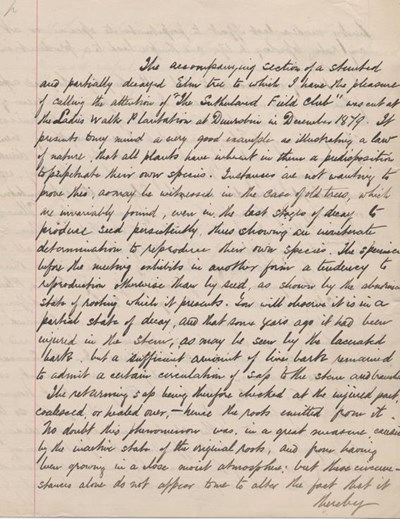 The accompanying section of a stunted
and partially decayed Elm tree to which I have the pleasure
of calling the attention of "The Sutherland Field Club" was cut at
the Ladies Walk Plantation at Dunrobin in December 1879. It
presents to my mind a very good example as illustrating a law
of nature, that all plants have inherent in them a predisposition
to perpetuate their own species. Instances are not wanting to
prove this, as may be witnessed in the case of old trees, which
are invariably found, even in the last stages of decay to
produce seed persistently, thus showing an inveterate
determination to reproduce their own species. The specimen
before the meeting exhibits in another form a tendency to
reproduction otherwise than by seed, as shown by the abnormal
state of rooting which it presents. You will observe it is in a
partial state of decay, and that some years ago it had been
injured in the stem, as may be seen by the lacerated
bark. but a sufficient amount of live bark remained
to admit a certain circulation of sap to the stem and branches
The returning sap being therefore checked at the injured part,
coalesced, or healed over, — hence the roots emitted from it.
No doubt this phenomenon was, in a great measure caused
by the inactive state of the original roots, and from having
been growing in a close moist atmosphere; but these circum-
stances alone do not appear to me to alter the fact that it
thereby